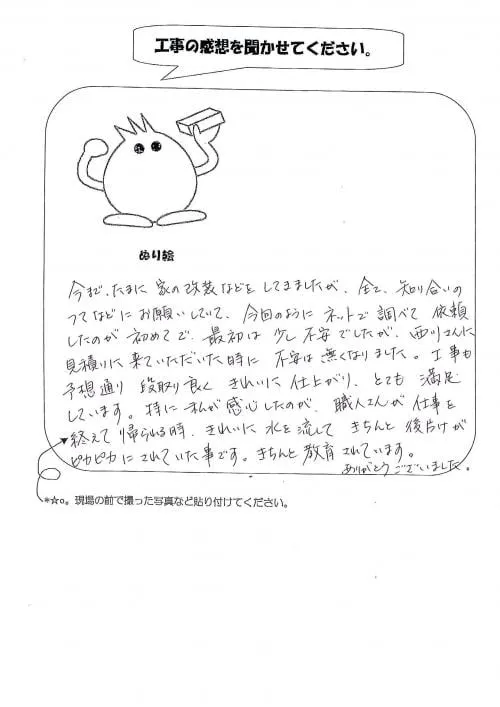 工事の感想を聞かせてください。
ぬり絵
今まで、たまに家の改装などをしてきましたが、全て、知り合いの
つてなどにお願いしていて、今回のようにネットで調べて依頼
したのが初めてで、最初は少し不安でしたが、西川さんに
見積りに来ていただいた時に不安は無くなりました。工事も
予想通り段取り良くきれいに仕上がり、とても満足
しています。特に私が感心したのが、職人さんが仕事を
終えて帰られる時、きれいに水を流してきちんと後片けが
ピカピカにされていた事です。きちんと教育されています。
ありがとうございました。
*☆○。現場の前で撮った写真など貼り付けてください。